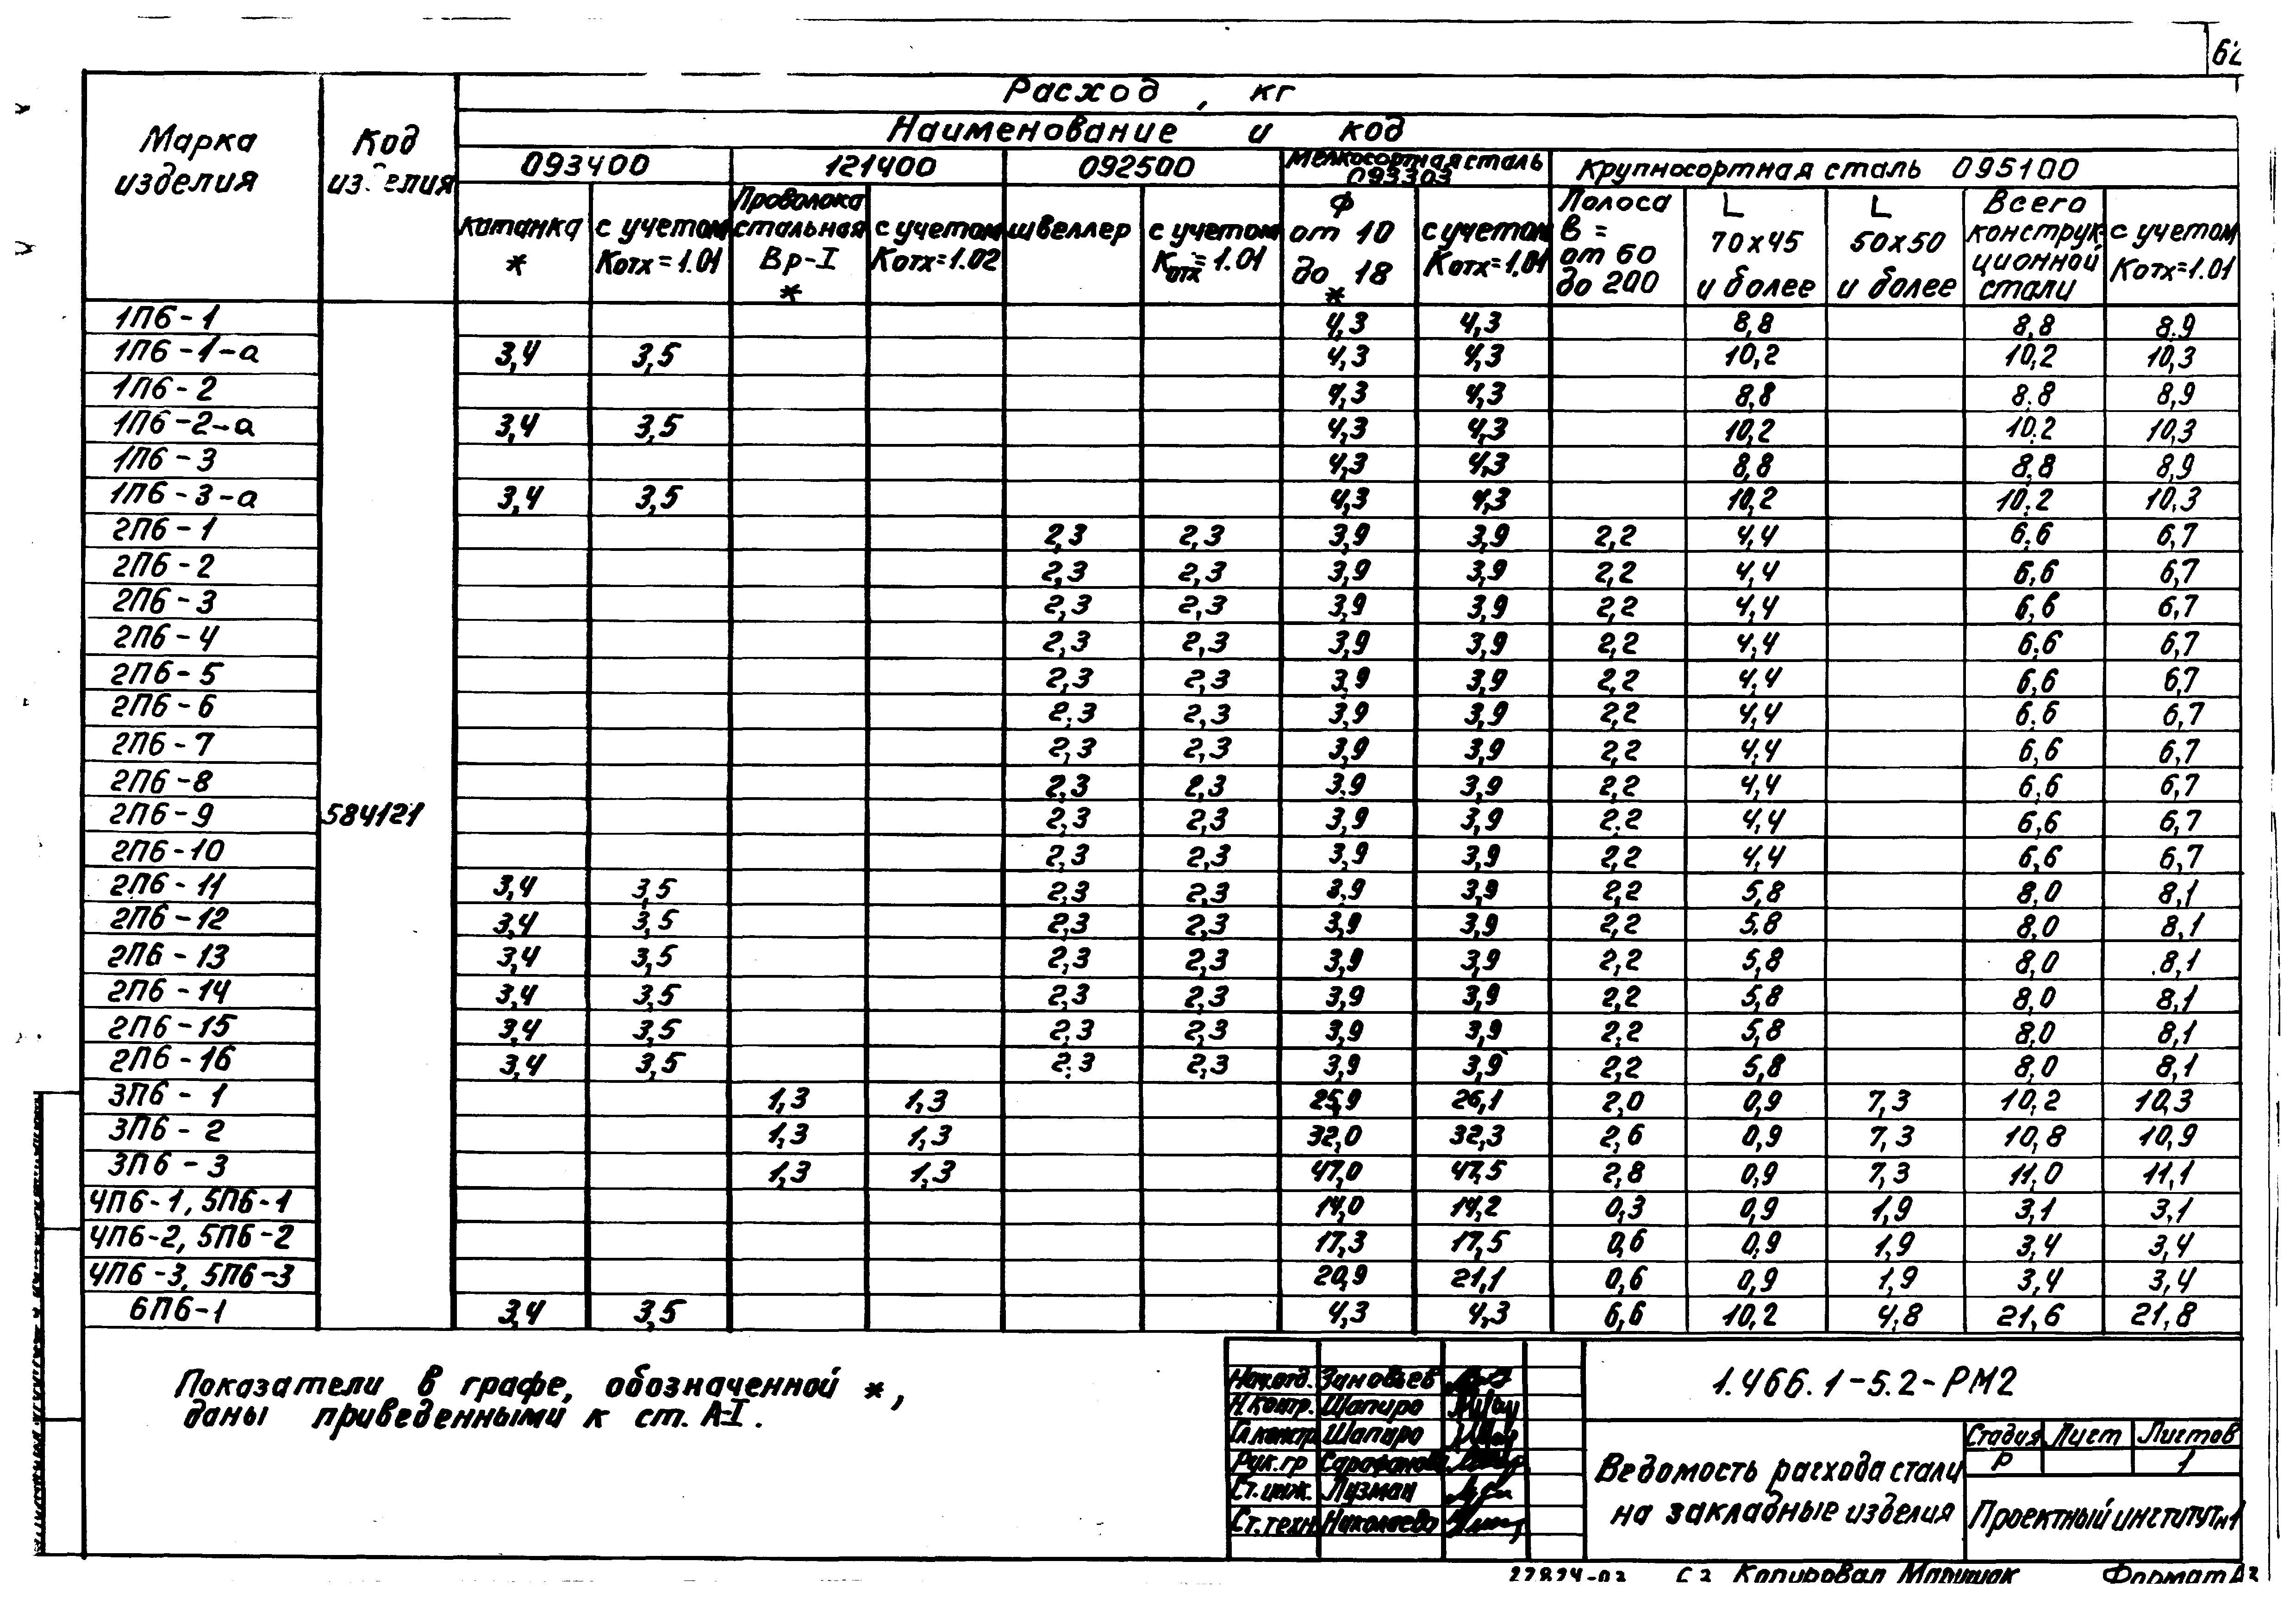 62
Расход, кг
Наименование и код
Марка изделия
Код изделия
093400
121400
092500
Мелкосортная сталь 093303
Крупносортная сталь 095100
катанка *
с учетом Котх=1.01
Проволока стальная Вр-I *
с учетом Котх=1.02
швеллер
с учетом Котх=1.01
Ф от 10 до 18 *
с учетом Котх=1.01
Полоса В= от 60 до 200
L 70х45 и более
L 50х50 и более
Всего конструкционной стали
с учетом Котх=1.01
1П6-1 4,3 4,3 8,8 8,8 8,9
1П6-1-а 3,4 3,5 4,3 4,3 10,2 10,2 10,3
1П6-2 4,3 4,3 8,8 8,8 8,9
1П6-2-а 3,4 3,5 4,3 4,3 10,2 10,2 10,3
1П6-3 4,3 4,3 8,8 8,8 8,9
1П6-3-а 3,4 3,5 4,3 4,3 10,2 10,2 10,3
2П6-1 2,3 2,3 3,9 3,9 2,2 4,4 6,6 6,7
2П6-2 2,3 2,3 3,9 3,9 2,2 4,4 6,6 6,7
2П6-3 2,3 2,3 3,9 3,9 2,2 4,4 6,6 6,7
2П6-4 2,3 2,3 3,9 3,9 2,2 4,4 6,6 6,7
2П6-5 2,3 2,3 3,9 3,9 2,2 4,4 6,6 6,7
2П6-6 2,3 2,3 3,9 3,9 2,2 4,4 6,6 6,7
2П6-7 2,3 2,3 3,9 3,9 2,2 4,4 6,6 6,7
2П6-8 2,3 2,3 3,9 3,9 2,2 4,4 6,6 6,7
2П6-9 584121 2,3 2,3 3,9 3,9 2,2 4,4 6,6 6,7
2П6-10 2,3 2,3 3,9 3,9 2,2 4,4 6,6 6,7
2П6-11 3,4 3,5 2,3 2,3 3,9 3,9 2,2 5,8 8,0 8,1
2П6-12 3,4 3,5 2,3 2,3 3,9 3,9 2,2 5,8 8,0 8,1
2П6-13 3,4 3,5 2,3 2,3 3,9 3,9 2,2 5,8 8,0 8,1
2П6-14 3,4 3,5 2,3 2,3 3,9 3,9 2,2 5,8 8,0 8,1
2П6-15 3,4 3,5 2,3 2,3 3,9 3,9 2,2 5,8 8,0 8,1
2П6-16 3,4 3,5 2,3 2,3 3,9 3,9 2,2 5,8 8,0 8,1
3П6-1 1,3 1,3 25,9 26,1 2,0 0,9 7,3 10,2 10,3
3П6-2 1,3 1,3 32,0 32,3 2,6 0,9 7,3 10,8 10,9
3П6-3 1,3 1,3 47,0 47,5 2,8 0,9 7,3 11,0 11,1
4П6-1, 5П6-1 14,0 14,2 0,3 0,9 1,9 3,1 3,1
4П6-2, 5П6-2 17,3 17,5 0,6 0,9 1,9 3,4 3,4
4П6-3, 5П6-3 20,9 21,1 0,6 0,9 1,9 3,4 3,4
6П6-1 3,4 3,5 4,3 4,3 6,6 10,2 4,8 21,6 21,8
Показатели в графе, обозначенной *,
даны приведенными к ст. А-I.
Нач.отд. Зиновьев
Н.контр. Шапиро
Гл.констр. Шапиро
Рук.гр Сарафанова
Ст.инж. Лузман
Ст.техн Николаева
1.466.1-5.2-РМ2
Ведомость расхода стали
на закладные изделия
Стадия Лист Листов
Р 1
Проектный институт №1
Копировал Формат А3